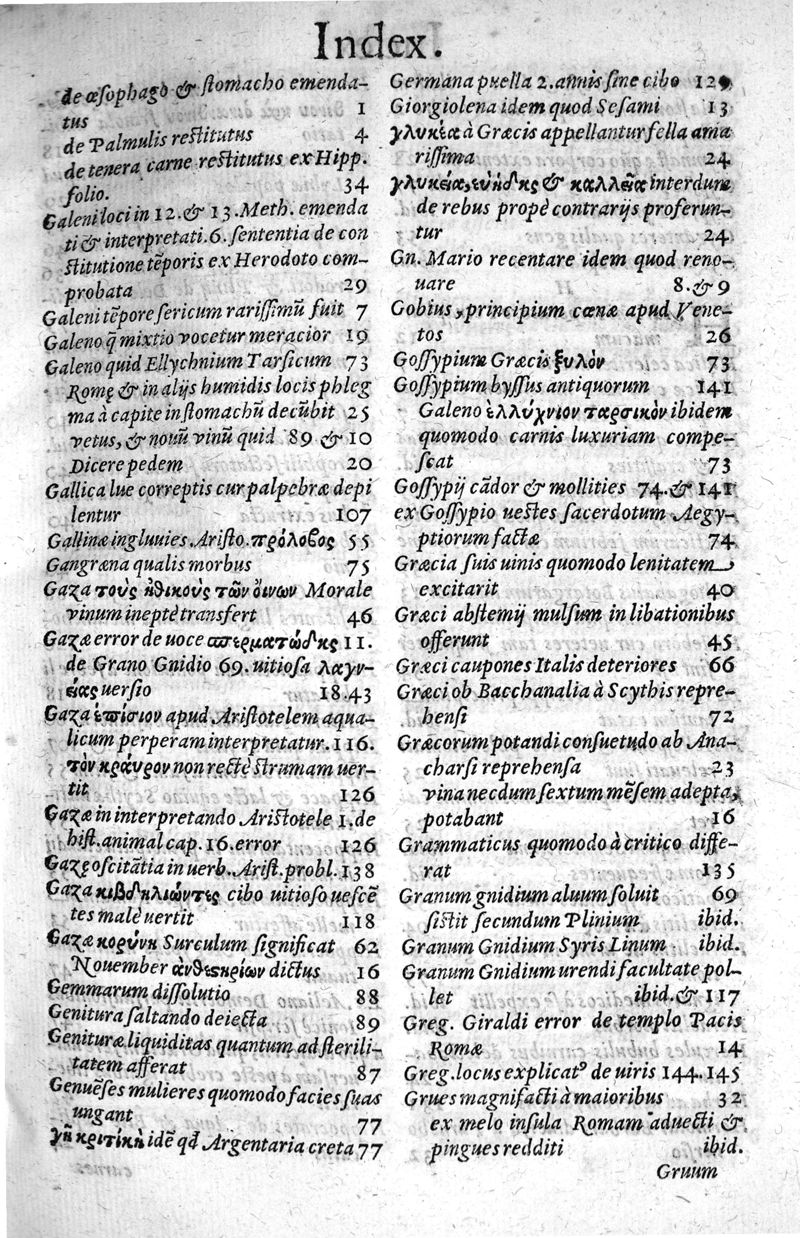 Index.
de œsophago & stomacho emenda-
tus 1
de Palmulis restitutus 4
de tenera carne restitutus ex Hipp.
folio. 34
Galeni loci in 12. & 13. Meth. emenda
ti & interpretati. 6. sententia de con
stitutione tēporis ex Herodoto com-
probata 29
Galeni tēpore sericum rarissimū fuit 7
Galeno q̃ mixtio vocetur meracior 19
Galeno quid Ellychnium Tarsicum 73
Romę & in alijs humidis locis phleg
ma à capite in stomachū decūbit 25
vetus, & nouū vinū quid 89 & 10
Dicere pedem 20
Gallica lue correptis cur palpebræ depi
lentur 107
Gallinæ ingluuies. Aristo. πρόλοβος 55
Gangræna qualis morbus 75
Gaza τοὺς ἠθικοὺς τῶν ὄινων Morale
vinum ineptè transfert 46
Gazæ error de uoce σπερματώδης 11.
de Grano Gnidio 69. uitiosa λαγν-
είας uersio 18.43
Gaza ἐπίσιον apud Aristotelem aqua-
licum perperam interpretatur. 116.
τὸν κραύρον non rectè strumam uer-
tit 126
Gazæ in interpretando Aristotele 1. de
hist. animal cap. 16. error 126
Gazę oscitātia in uerb. Arist. probl. 138
Gaza κιβδηλιώντες cibo uitioso uescē
tes malè uertit 118
Gazæ κορύνη Surculum significat 62
November ἀνθεστηρίων dictus 16
Gemmarum dissolutio 88
Genitura saltando deiecta 89
Genituræ liquiditas quantum ad sterili-
tatem afferat 87
Genuēses mulieres quomodo facies suas
ungant 77
γῆ κριτικὴ idē qđ Argentaria creta 77
Germana puella 2. annis sine cibo 129
Giorgiolena idem quod Sesami 13
γλυκέα à Græcis appellantur fella ama
rissima 24
γλυκεία, ἐυήδης & καλλεῖα interdum
de rebus propè contrarijs proferun-
tur 24
Gn. Mario recentare idem quod reno-
uare 8. & 9
Gobius, principium cœnæ apud Vene-
tos 26
Gossypium Græcis ξυλόν 73
Gossypium byssus antiquorum 141
Galeno ἐλλύχνιον ταρσικὸν ibidem
quomodo carnis luxuriam compe-
scat 73
Gossypij cādor & mollities 74. & 141
ex Gossypio uestes sacerdotum Aegy-
ptiorum factæ 74
Græcia suis uinis quomodo lenitatem
excitarit 40
Græci abstemij mulsum in libationibus
offerunt 45
Græci caupones Italis deteriores 66
Græci ob Bacchanalia à Scythis repre-
hensi 72
Græcorum potandi consuetudo ab Ana-
charsi reprehensa 23
vina necdum sextum mēsem adepta,
potabant 16
Grammaticus quomodo à critico diffe-
rat 135
Granum gnidium aluum soluit 69
sistit secundum Plinium ibid.
Granum Gnidium Syris Linum ibid.
Granum Gnidium urendi facultate pol-
let ibid. & 117
Greg. Giraldi error de templo Pacis
Romæ 14
Greg. locus explicatꝰ de uiris 144.145
Grues magnifacti à maioribus 32
ex melo insula Romam aduecti &
pingues redditi ibid.
Gruum